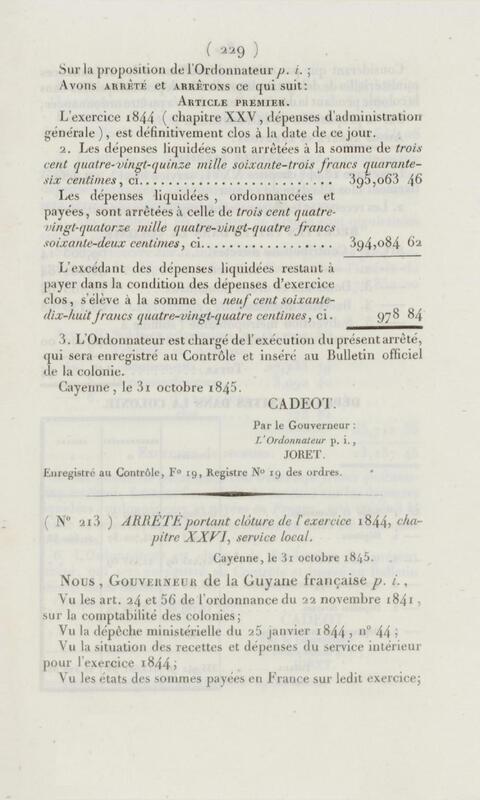 ( 229 )
Sur la proposition de l'Ordonnateur p. i. ;
Avons arrêté et arrêtons ce qui suit:
Article premier.
L'exercice 1844 ( chapitre XXV, dépenses d'administration
générale ), est définitivement clos à la date de ce jour.
2. Les dépenses liquidées sont arrêtées à la somme de trois
cent quatre-vingt-quinze mille soixante-trois francs quarante-
six centimes, ci........................... 395,063 46
Les dépenses liquidées, ordonnancées et
payées, sont arrêtées à celle de trois cent quatre-
vingt-quatorze mille quatre-vingt-quatre francs
soixante-deux centimes, ci.................. 394,084 62
L'excédant des dépenses liquidées restant à
payer dans la condition des dépenses d'exercice
clos, s'élève à la somme de neuf cent soixante-
dix-huit francs quatre-vingt-quatre centimes, ci. 978 84
3. L'Ordonnateur est chargé de l'exécution du présent arrêté,
qui sera enregistré au Contrôle et inséré au Bulletin officiel
de la colonie.
Cayenne, le 31 octobre 1845.
CADEOT.
Par le Gouverneur :
L'Ordonnateur p. i.,
JORET.
Enregistré au Contrôle, F° 19, Registre N° 19 des ordres.
( N° 213 ) ARRÊTÉ portant clôture de l'exercice 1844, cha-
pitre XXVI, service local.
Cayenne, le 31 octobre 1845.
Nous, Gouverneur de la Guyane française p. i.,
Vu les art. 24 et 56 de l'ordonnance du 22 novembre 1841,
sur la comptabilité des colonies;
Vu la dépêche ministérielle du 25 janvier 1844, n° 44;
Vu la situation des recettes et dépenses du service intérieur
pour l'exercice 1844;
Vu les états des sommes payées en France sur ledit exercice;